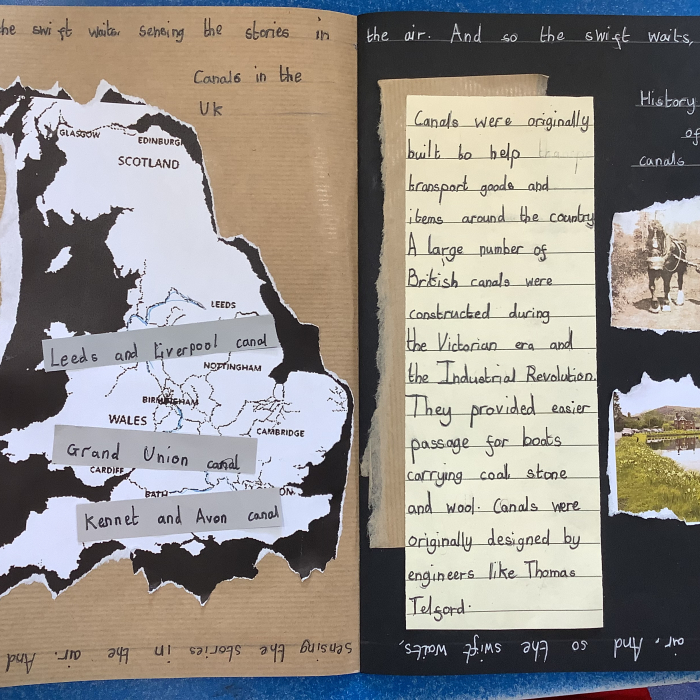 the swift waits, sensing the stories in
the air. And so the swift waits,
Canals in the
UK
GLASGOW
EDINBURG
SCOTLAND
LEEDS
Leeds and Liverpool canal
NOTTINGHAM
BIRMINGHAM
WALES
CAMBRIDGE
Grand Union canal
CARDIFF
BATH
Kennet and Avon canal
Canals were originally
built to help
transport goods and
items around the country
A large number of
British canals were
constructed during
the Victorian era and
the Industrial Revolution.
They provided easier
passage for boats
carrying coal stone
and wool. Canals were
originally designed by
engineers like Thomas
Telford.
History
of
canals
sensing the stories in the air. And
air. And so the swift waits,